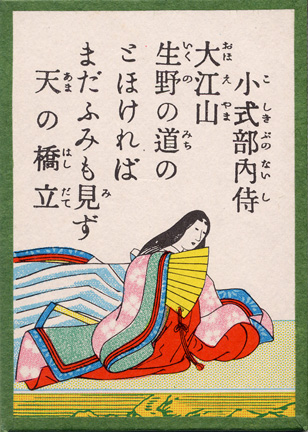 小式部内侍
大江山
生野の道の
とほければ
まだふみも見ず
天の橋立